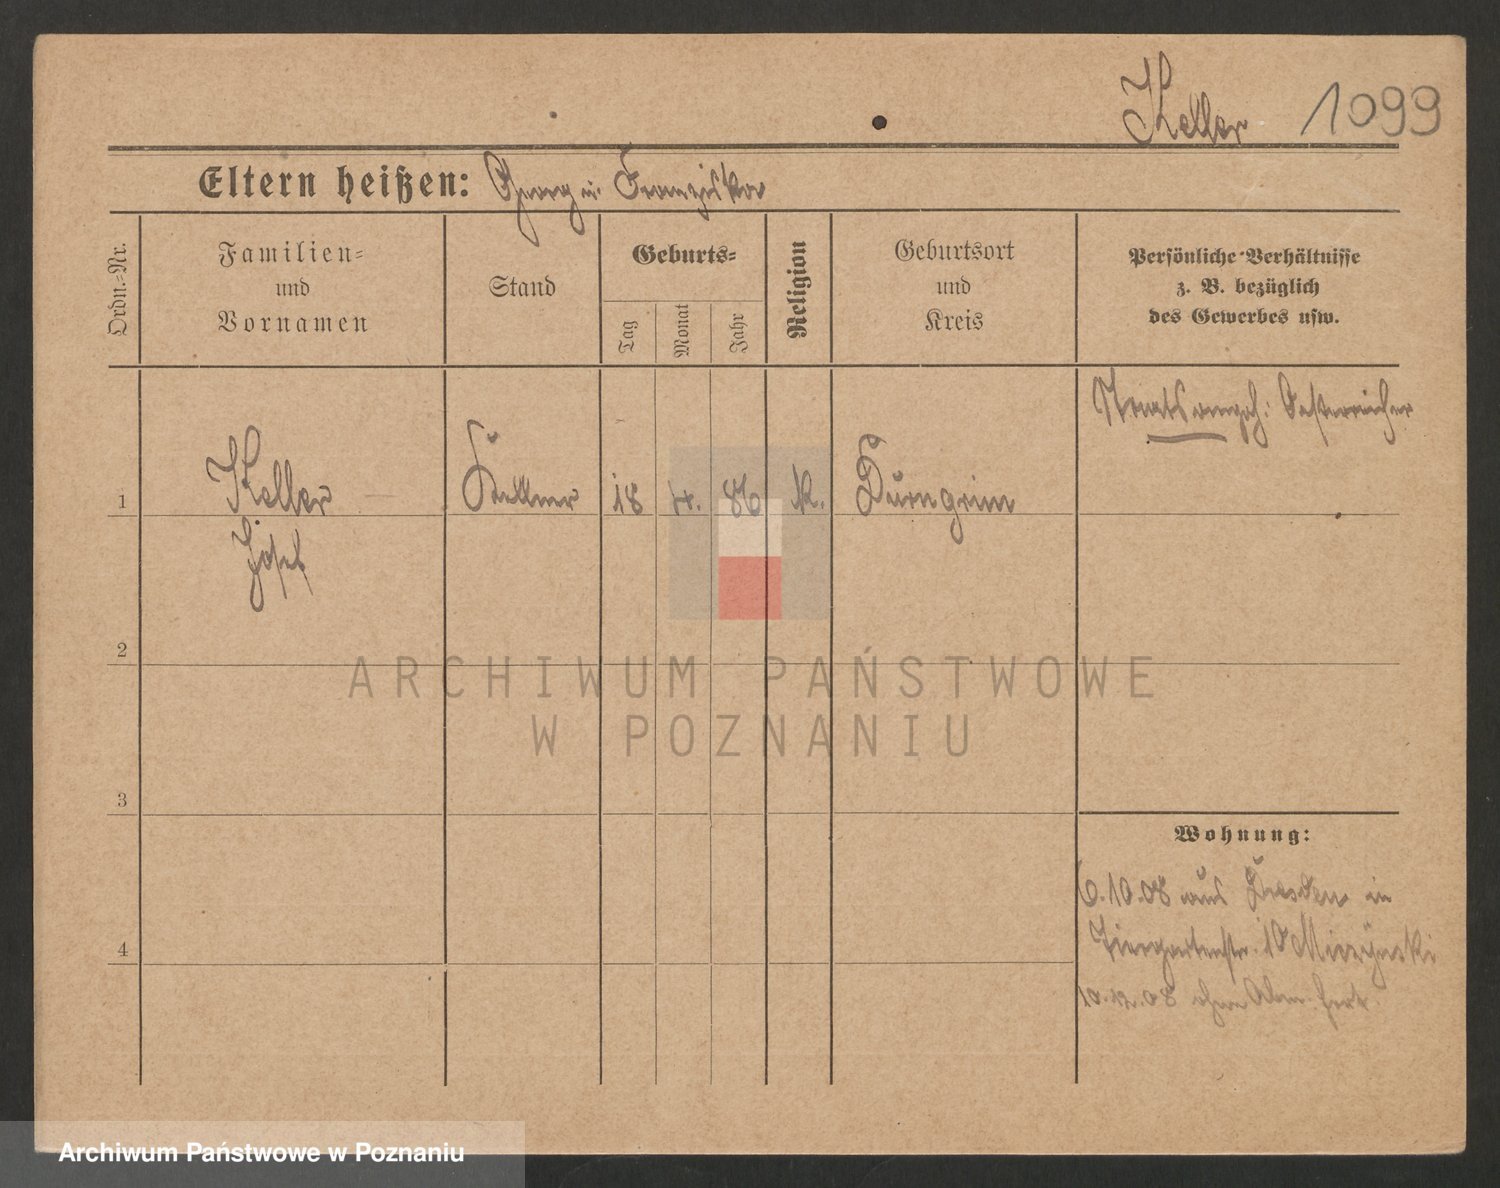 Keller 1099
Eltern heißen: Georg u. Franziska
Ordn.=Nr.
Familien=
und
Vornamen
Stand
Geburts=
Tag
Monat
Jahr
Religion
Geburtsort
und
Kreis
Persönliche Verhältnisse
z. B. bezüglich
des Gewerbes usw.
Staatsangeh: Oesterreicher
1 Keller Kellner 18 4. 86 k. Dürngrün
Josef
2
3
4
Wohnung:
6.10.08 aus Dresden in
Tiergartenstr. 10
10.12.08 ohne Abm. fort.
ARCHIWUM PAŃSTWOWE
W POZNANIU
Archiwum Państwowe w Poznaniu